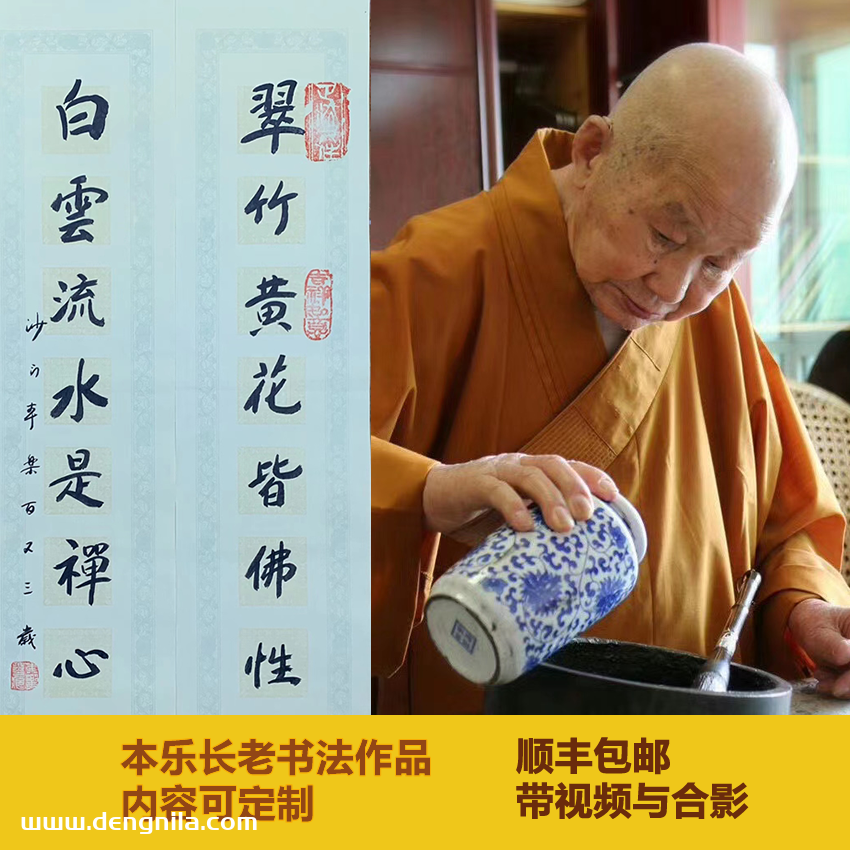 翠竹黄花皆佛性
白雲流水是禪心
沙门本乐百又三歲
本乐长老书法作品
内容可定制
顺丰包邮
带视频与合影
www.dengnila.com